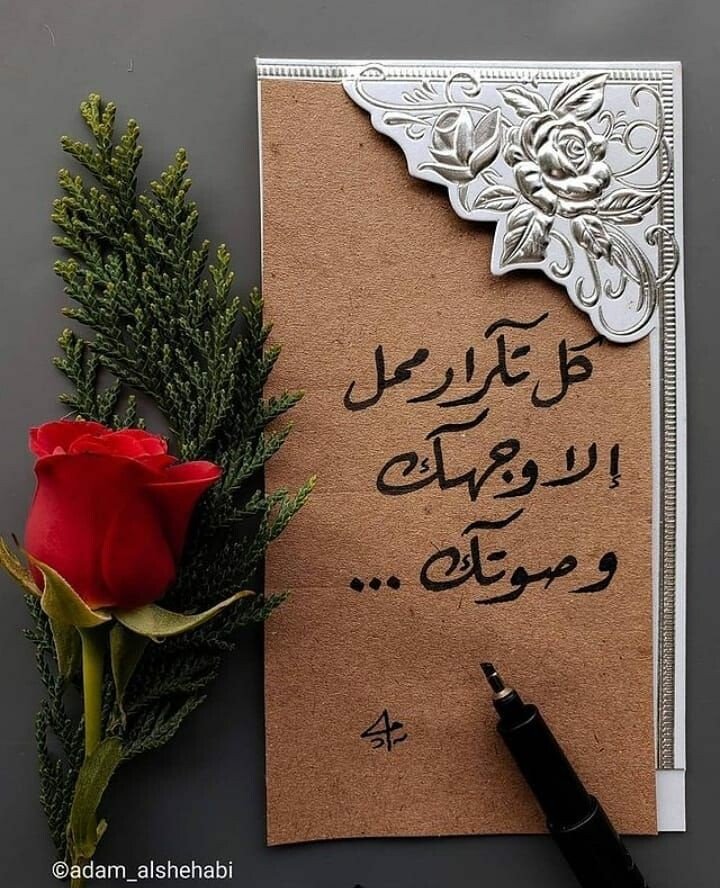 كل تكرار ممل
إلا وجهك
وصوتك ...
©adam_alshehabi